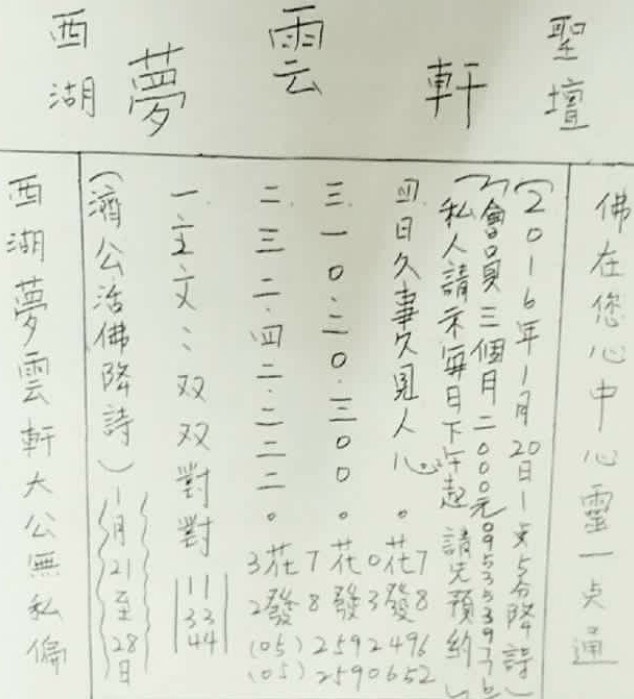 西湖 夢雲軒 聖壇
佛在您心中心靈一点通
(2016年1月20日1点5分降詩)
(會員三個月二000元
私人請示每日下午起 請先預約)
四.日久事久見人心。花發
三.一0.二0.三00。花發
二.三二.四二.二二二。花發
一.主文:双双對對 11 33 44
7 0 7 3
8 3 8 2
(05)2592496
(05)2590652
(濟公活佛降詩)1月21至28日
西湖夢雲軒大公無私偏